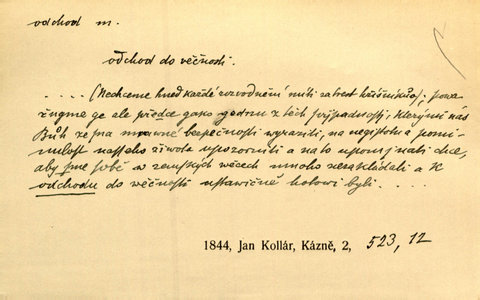 odchod m.
odchod do věčnosti.
.... (Nechceme hned každé rozvodnění míti za trest hříšníků); powa-
žugme ge ale předce gako gednu z těch případností, kterými nás
Bůh ze sna mrawné bezpečnosti wyraziti, na negistotu a pomi-
nulost nassého žiwota upozorniti a na to upomjnati chce,
aby jsme sobě w zemských wěcech mnoho nezakládali a k
odchodu do věčnosti ustawičně hotowi byli. ....
1844, Jan Kollár, Kázně, 2, 523, 12